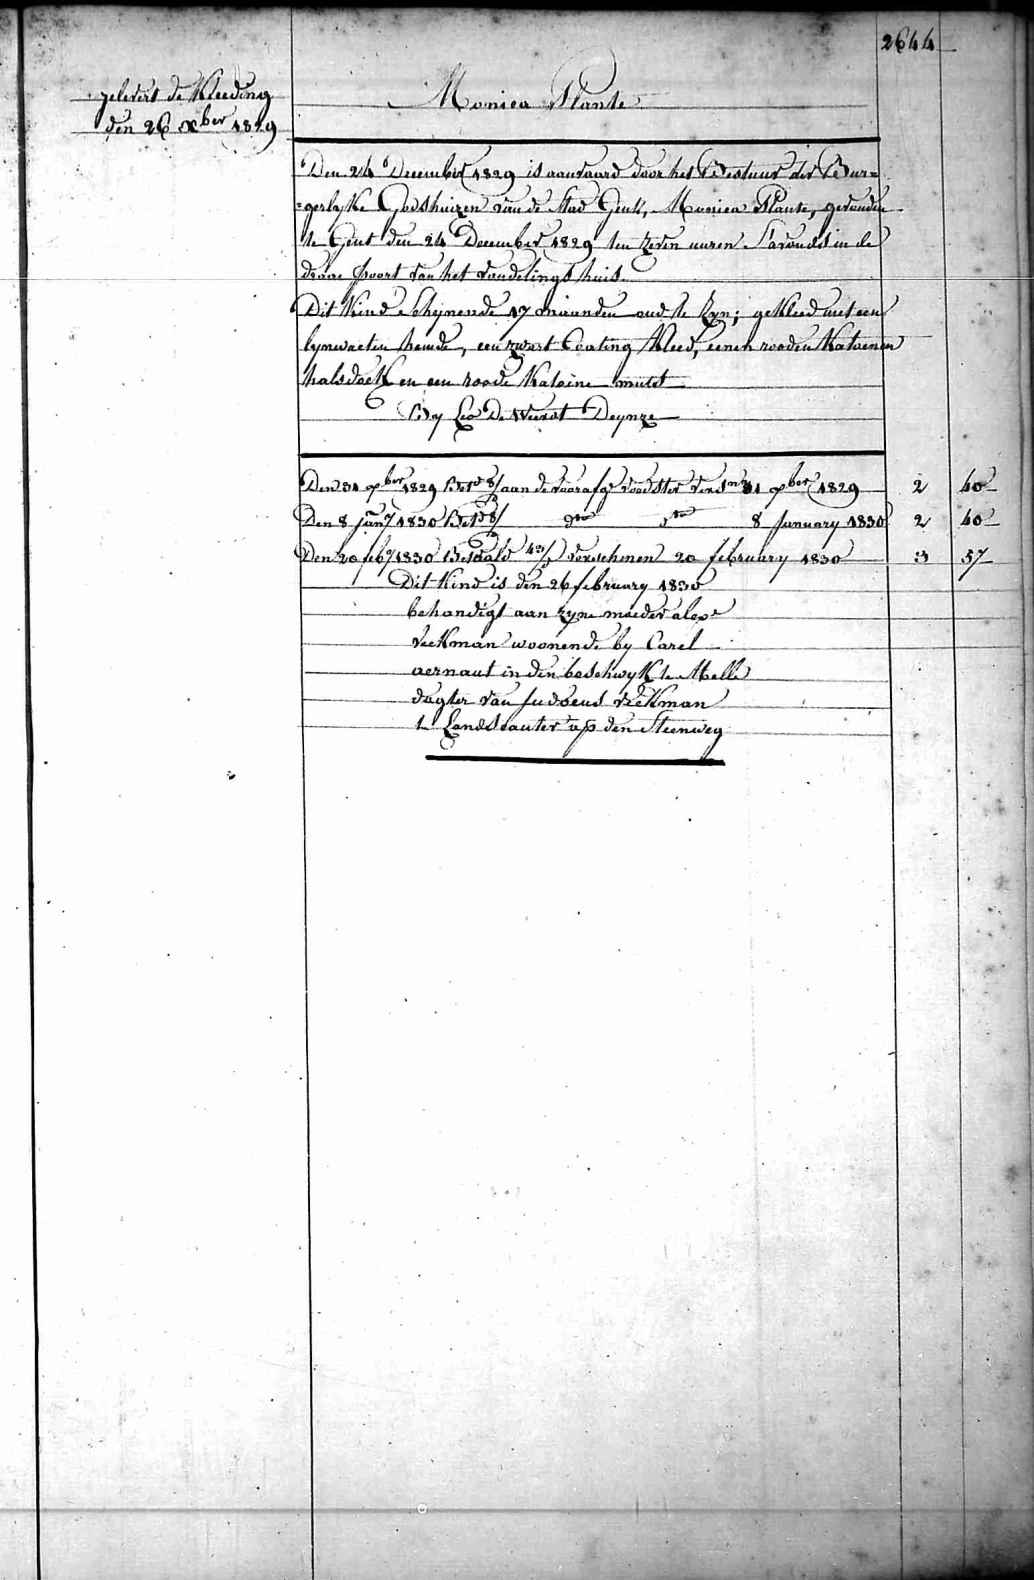 2644
gelevert de Kleeding
den 26 xber 1829
Monica Plante
Den 24 December 1829 is aanvaard door het Bestuur der Bur=
=gerlyke Godshuizen van de Stad Gent, Monica Plante, gevonden
te Gent den 24 December 1829 ten zeven uuren S'avonds in de
draae poort van het vondelingshuis.
Dit Kind Schynende 17 maanden oud te zyn; gekleed met een
lynwaeten hemde, een zwart Coating Kleed, eenen rooden Katoenen
halsdoek en een roode Katoine muts
By Leo De Weerdt Deynze
Den 31 xber 1829 Bet^d 8/ aan de voorafg^e voedster versn 31 xber 1829 2 40
Den 8 jan^y 1830 Bet^d 8/ d^to d^to 8 January 1830 2 40
Den 20 feb^y 1830 Betaald 43/ verschenen 20 february 1830 3 57
Dit Kind is den 26 february 1830
behandigt aan zyne moeder alex^e
veekman woonende by Carel
aernaut in den boschwyk te Melle
dogter van Judocus veekman
te Landscauter op den Steenweg